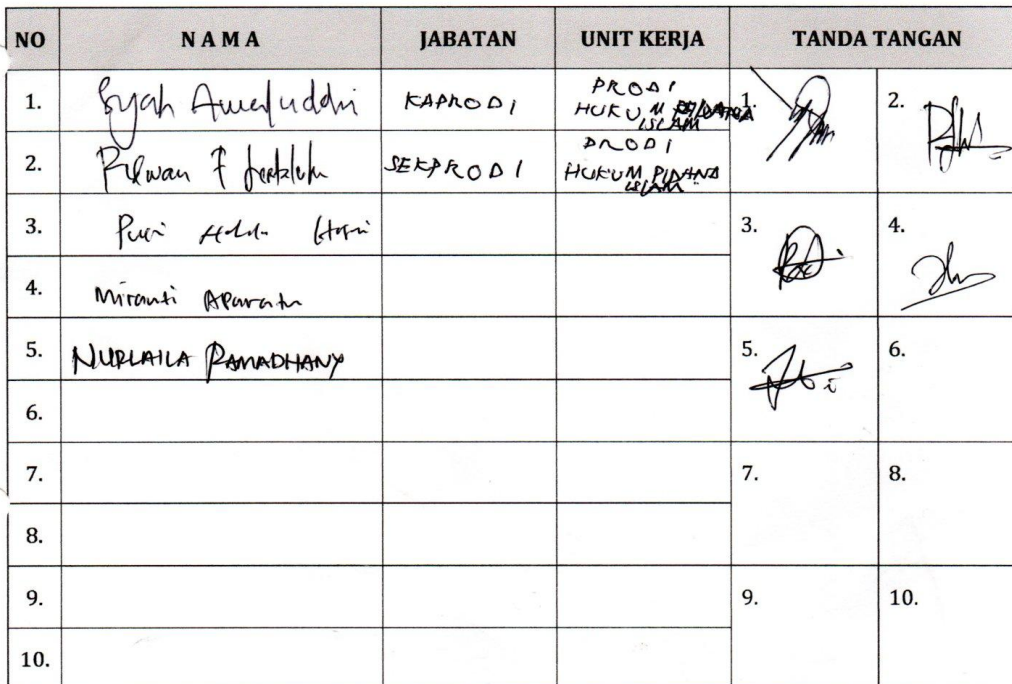 NO NAMA JABATAN UNIT KERJA TANDA TANGAN
1. Syah KAPRODI PRODI 1. 2.
HUKUM PIDANA
ISLAM
2. SEKPRODI PRODI
HUKUM PIDANA
ISLAM
3. 3. 4.
4. Miranti
5. NURLAILA RAMADHANY 5. 6.
6.
7. 7. 8.
8.
9. 9. 10.
10.